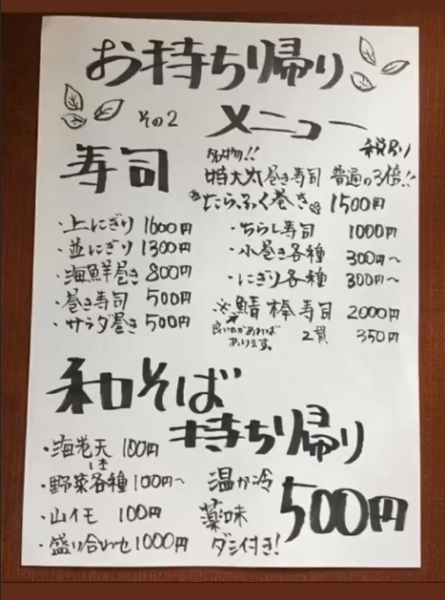 お持ち帰り
その2 メニュー
税別
寿司
名物!!
特大太巻き寿司 普通の3倍!!
たらふく巻き 1500円
・上にぎり 1600円
・並にぎり 1300円
・海鮮巻き 800円
・巻き寿司 500円
・サラダ巻き 500円
・ちらし寿司 1000円
・小巻き各種 300円～
・にぎり各種 300円～
※鯖棒寿司 2000円
良いのがあれば
あります。
2貫 350円
和そば
持ち帰り
・海老天 100円
・野菜各種 100円～
・山イモ 100円
・盛り合わせ 1000円
温か冷
薬味
ダシ付き!
500円